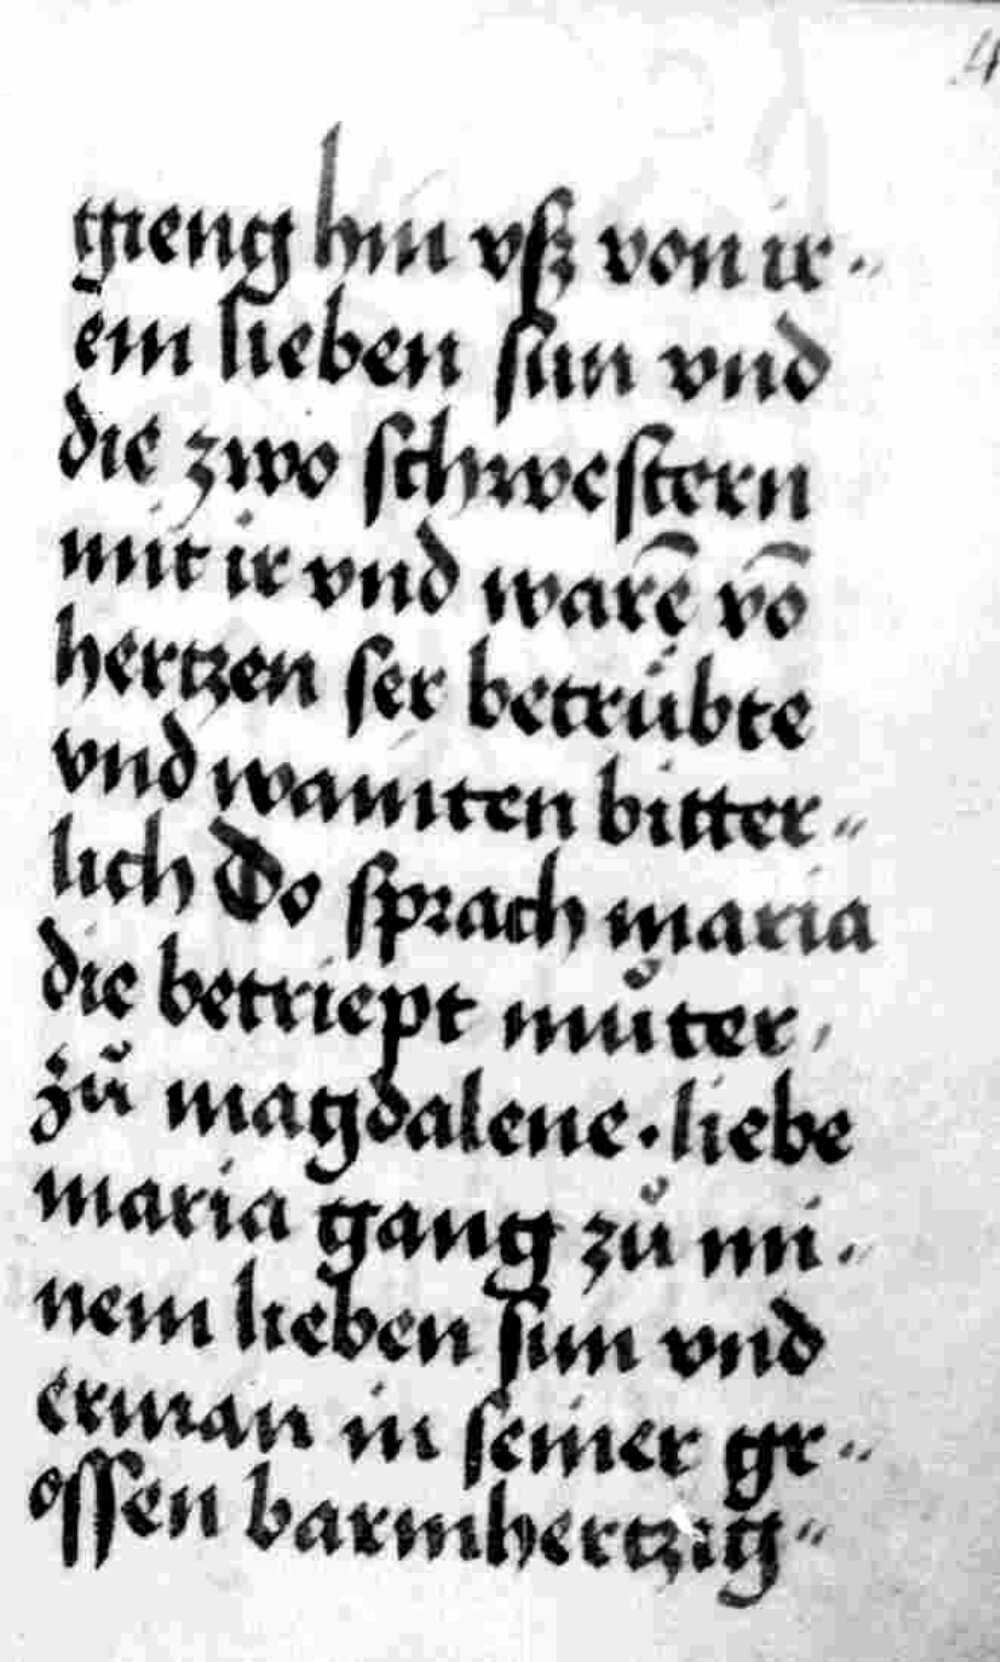 4
gieng hin vß von ir„
em lieben sun vnd
die zwo schwestern
mit ir vnd warē vō
hertzen ser betrübte
vnd wainten bitter„
lich Do sprach maria
die betriept muͦter,
zuͦ magdalene · liebe
maria gang zuͦ mi„
nem lieben sun vnd
erman in seiner gr„
ossen barmhertzig„